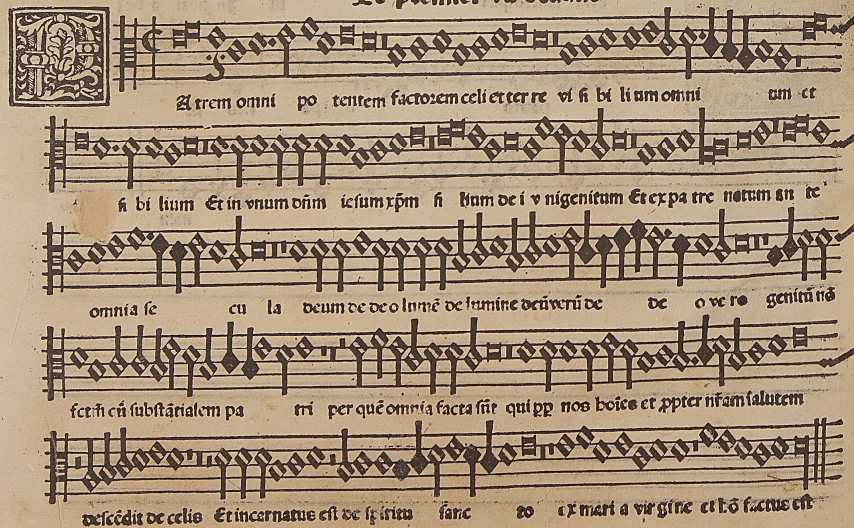 Atrem omni po tentem factorem celi et ter re vi si bi li um omni um et
si bi lium Et in vnum dñm iesum xp̄m fi lium de i v nigenitum Et ex pa tre natum an te
omnia se cu la deum de de o lumē de lumine deū verū de de o ve ro genitū nō
fctm̄ cū substātialem pa tri per quē omnia facta sūt qui pp nos hoīes et ꝓpter nr̄am salutem
descēdit de celis Et incarnatus est de spiritu sanc to ex mari a vir gine et hō factus est